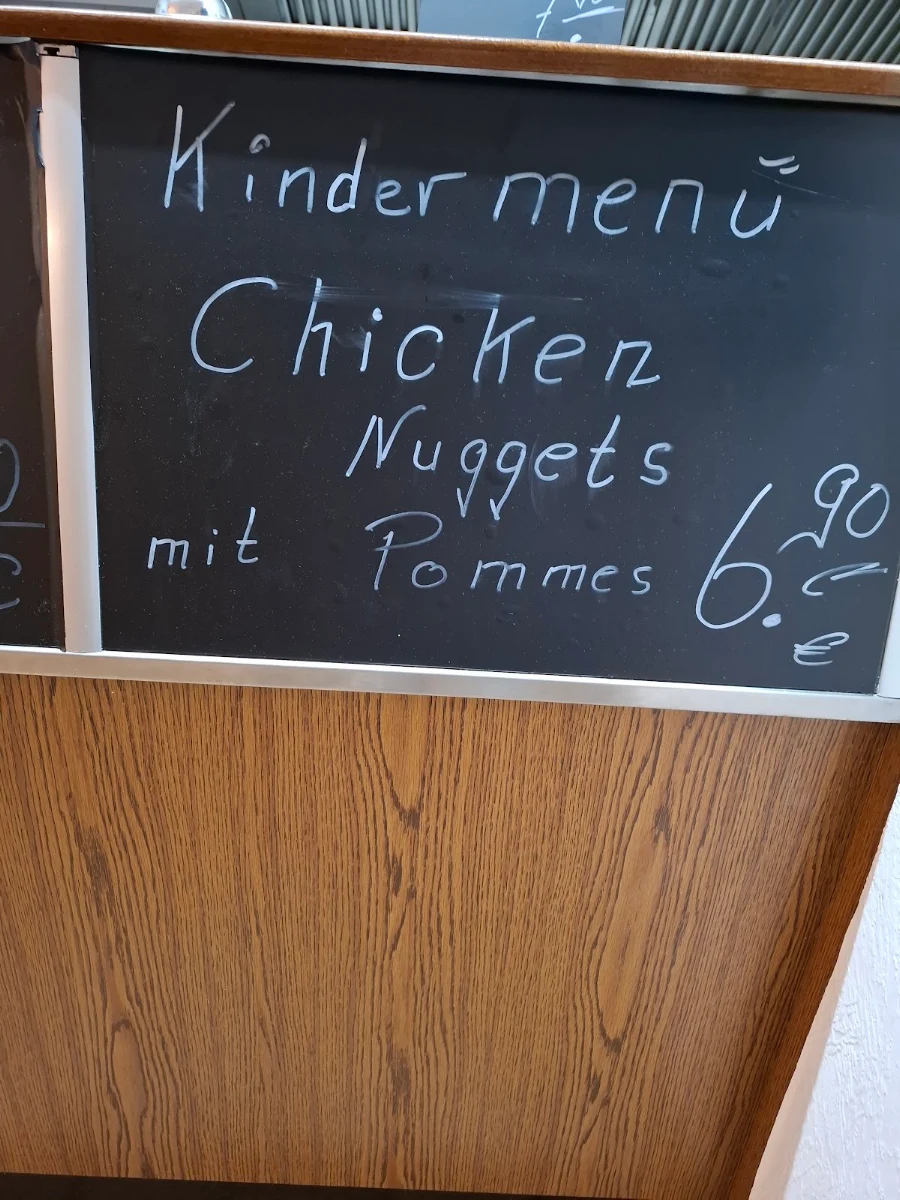 Kindermenü
Chicken
Nuggets
mit Pommes 6.90
€